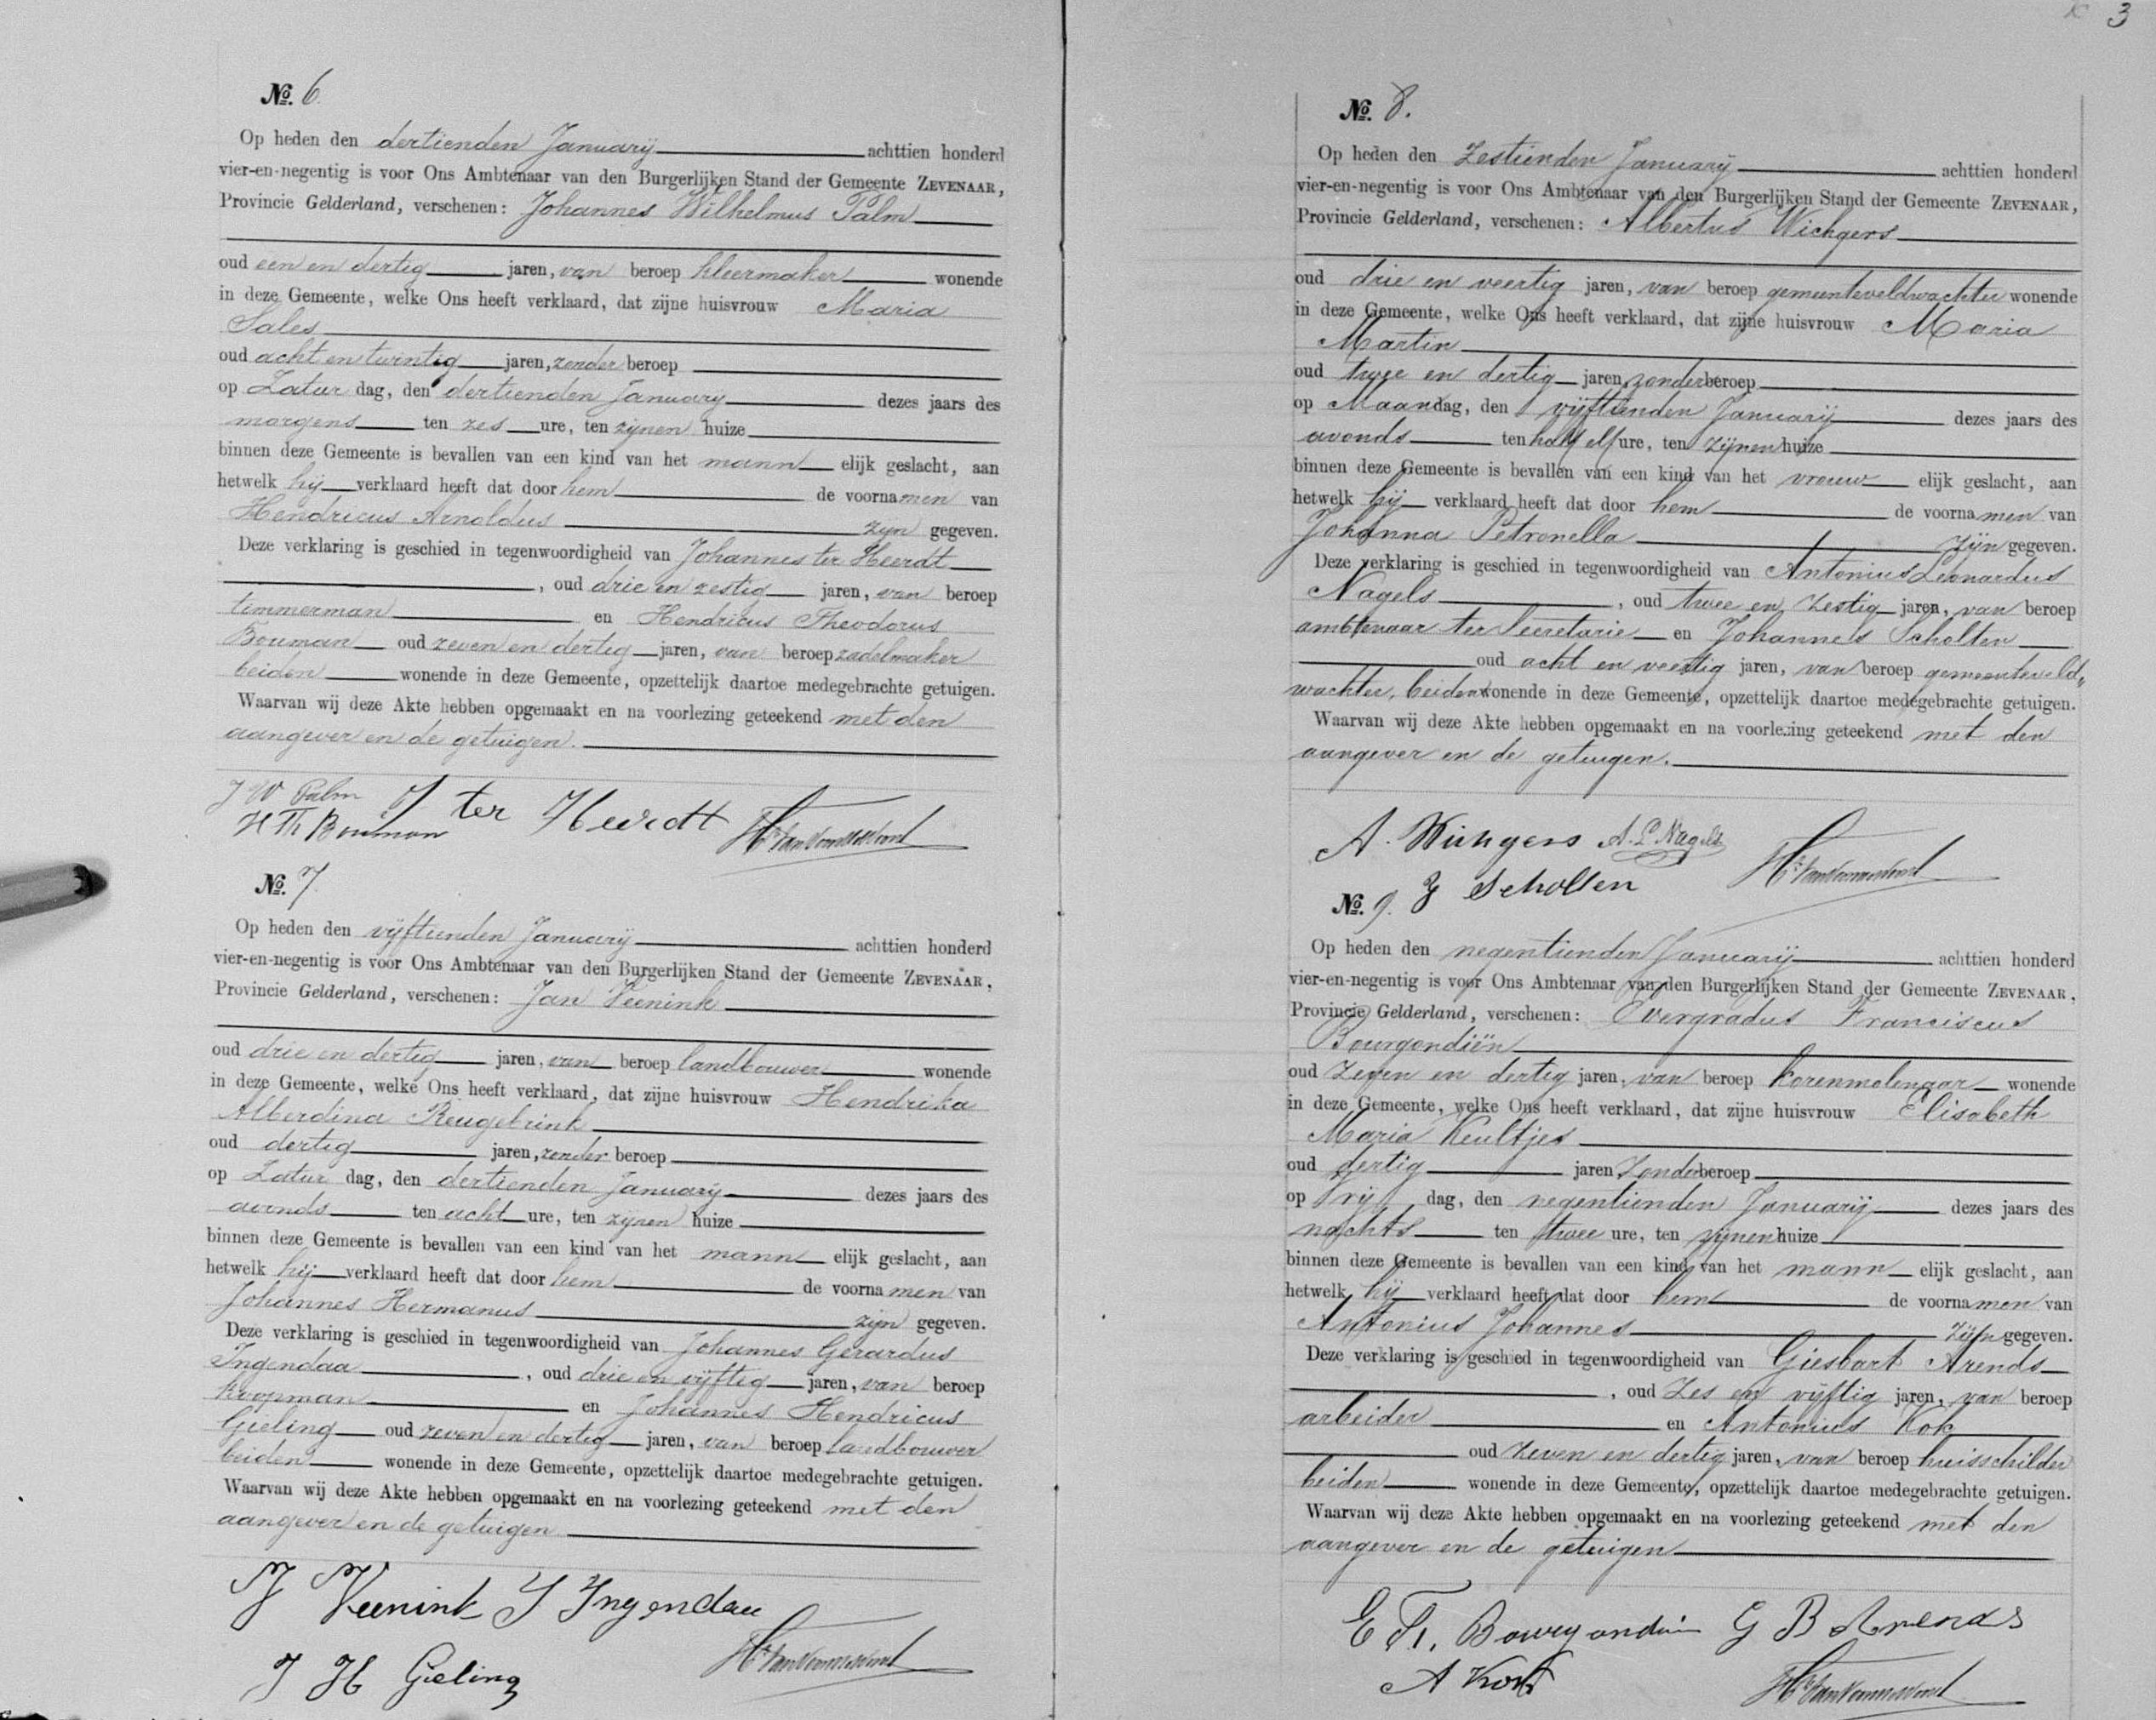 3
№. 6.
Op heden den dertienden Januarij achttien honderd
vier-en-negentig is voor Ons Ambtenaar van den Burgerlijken Stand der Gemeente ZEVENAAR,
Provincie Gelderland, verschenen: Johannes Wilhelmus Palm
oud een en dertig jaren, van beroep kleermaker wonende
in deze Gemeente, welke Ons heeft verklaard, dat zijne huisvrouw Maria
Sales
oud acht en twintig jaren, zonder beroep
op Zatur dag, den dertienden Januarij dezes jaars des
morgens ten zes ure, ten zijnen huize
binnen deze Gemeente is bevallen van een kind van het mann elijk geslacht, aan
hetwelk hij verklaard heeft dat door hem de voornamen van
Hendricus Arnoldus zijn gegeven.
Deze verklaring is geschied in tegenwoordigheid van Johannes ter Heerdt
, oud drie en zestig jaren, van beroep
timmerman en Hendricus Theodorus
Bouman oud zeven en dertig jaren, van beroep zadelmaker
beiden wonende in deze Gemeente, opzettelijk daartoe medegebrachte getuigen.
Waarvan wij deze Akte hebben opgemaakt en na voorlezing geteekend met den
aangever en de getuigen.
J W Palm J ter Heerdt
H Th Bouman
№. 7.
Op heden den vijftienden Januarij achttien honderd
vier-en-negentig is voor Ons Ambtenaar van den Burgerlijken Stand der Gemeente ZEVENAAR,
Provincie Gelderland, verschenen: Jan Veenink
oud drie en dertig jaren, van beroep landbouwer wonende
in deze Gemeente, welke Ons heeft verklaard, dat zijne huisvrouw Hendrika
Alberdina Reugebrink
oud dertig jaren, zonder beroep
op Zatur dag, den dertienden Januarij dezes jaars des
avonds ten acht ure, ten zijnen huize
binnen deze Gemeente is bevallen van een kind van het mann elijk geslacht, aan
hetwelk hij verklaard heeft dat door hem de voornamen van
Johannes Hermanus zijn gegeven.
Deze verklaring is geschied in tegenwoordigheid van Johannes Gerardus
Ingendaa , oud drie en vijftig jaren, van beroep
koopman en Johannes Hendricus
Gieling oud zeven en dertig jaren, van beroep landbouwer
beiden wonende in deze Gemeente, opzettelijk daartoe medegebrachte getuigen.
Waarvan wij deze Akte hebben opgemaakt en na voorlezing geteekend met den
aangever en de getuigen
J Veenink J Ingendaa
J H Gieling
№. 8.
Op heden den Zestienden Januarij achttien honderd
vier-en-negentig is voor Ons Ambtenaar van den Burgerlijken Stand der Gemeente ZEVENAAR,
Provincie Gelderland, verschenen: Albertus Wichgers
oud drie en veertig jaren, van beroep gemeenteveldwachter wonende
in deze Gemeente, welke Ons heeft verklaard, dat zijne huisvrouw Maria
Martin
oud twee en dertig jaren, zonder beroep
op Maandag, den vijftienden Januarij dezes jaars des
avonds ten half elf ure, ten zijnen huize
binnen deze Gemeente is bevallen van een kind van het vrouw elijk geslacht, aan
hetwelk hij verklaard heeft dat door hem de voornamen van
Johanna Petronella zijn gegeven.
Deze verklaring is geschied in tegenwoordigheid van Antonius Leonardus
Nagels , oud twee en zestig jaren, van beroep
ambtenaar ter Secretarie en Johannes Scholten
oud acht en veertig jaren, van beroep gemeenteveld„
wachter, beiden wonende in deze Gemeente, opzettelijk daartoe medegebrachte getuigen.
Waarvan wij deze Akte hebben opgemaakt en na voorlezing geteekend met den
aangever en de getuigen.
A. Wichgers A. L. Nagels
J Scholten
№. 9.
Op heden den negentienden Januarij achttien honderd
vier-en-negentig is voor Ons Ambtenaar van den Burgerlijken Stand der Gemeente ZEVENAAR,
Provincie Gelderland, verschenen: Evergradus Franciscus
Bourgondiën
oud zeven en dertig jaren, van beroep korenmolenaar wonende
in deze Gemeente, welke Ons heeft verklaard, dat zijne huisvrouw Elisabeth
Maria Keultjes
oud dertig jaren, zonder beroep
op Vrij dag, den negentienden Januarij dezes jaars des
nachts ten twee ure, ten zijnen huize
binnen deze Gemeente is bevallen van een kind van het mann elijk geslacht, aan
hetwelk hij verklaard heeft dat door hem de voornamen van
Antonius Johannes zijn gegeven.
Deze verklaring is geschied in tegenwoordigheid van Giesbart Arends
, oud zes en vijftig jaren, van beroep
arbeider en Antonius Kok
oud zeven en dertig jaren, van beroep huisschilder
beiden wonende in deze Gemeente, opzettelijk daartoe medegebrachte getuigen.
Waarvan wij deze Akte hebben opgemaakt en na voorlezing geteekend met den
aangever en de getuigen
E Fr. Bourgondiën G B Arends
A Kok